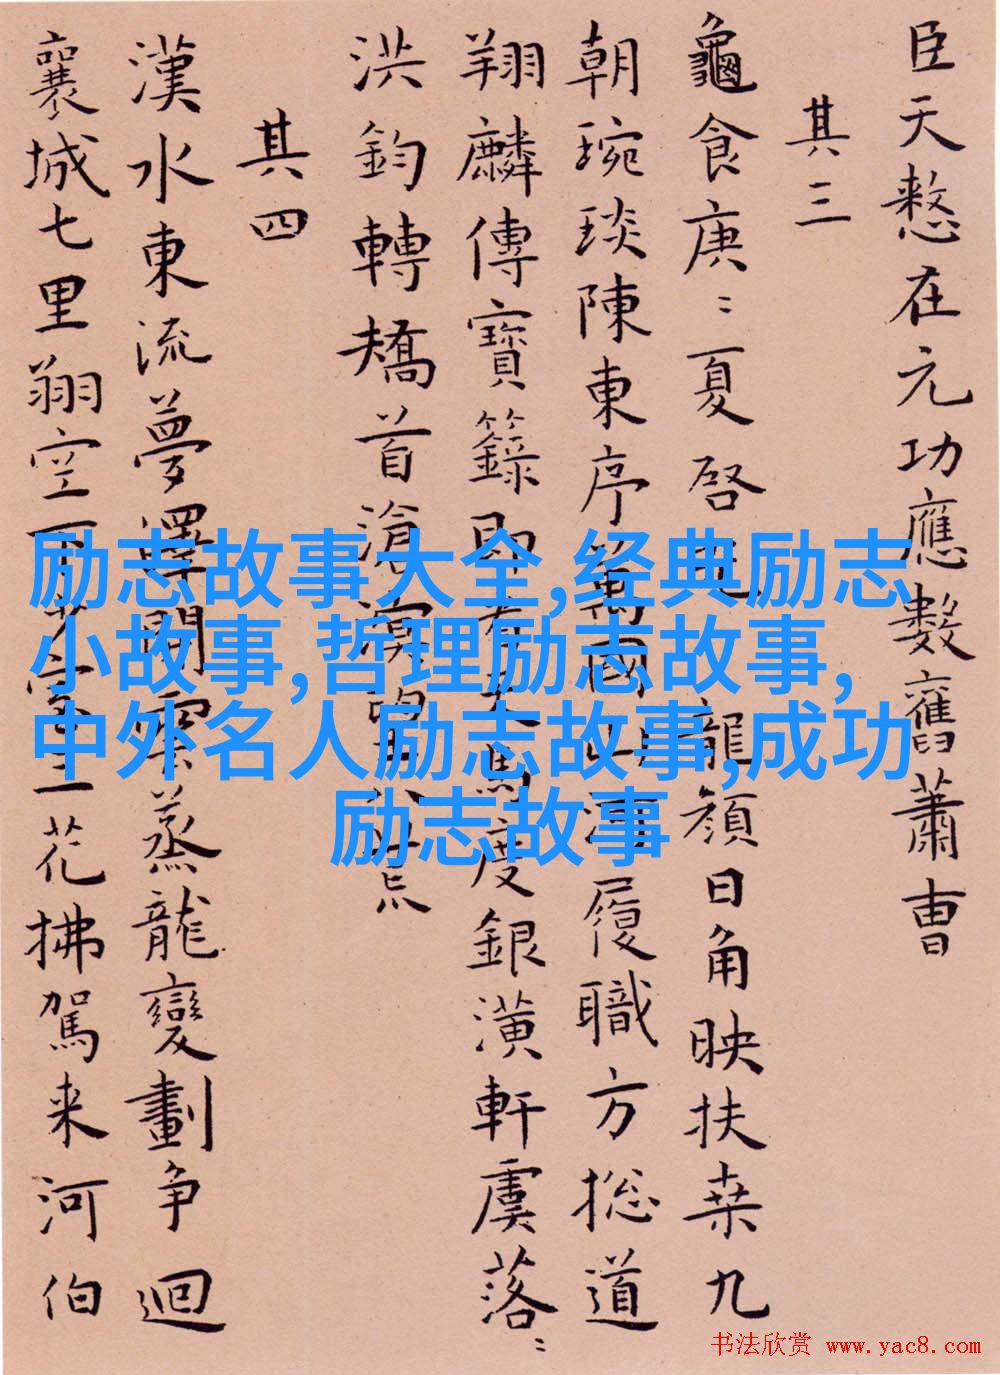 臣天憖在元功應數舊蕭曹
其三
龜食庚〻夏啓
龍顏日角映扶桒九
朝琬琰陳東序萬國
履職方揔道
翔麟傳寶籙即
度銀潢軒虞落〻
洪鈞轉矯首滄溟
其四
漢水東流夢澤開雲蒸龍變劃争迴
襄城七里翔空
花拂駕来河伯
励志故事大全,经典励志
小故事,哲理励志故事,
中外名人励志故事,成功
励志故事
书法欣赏 www.yac8.com